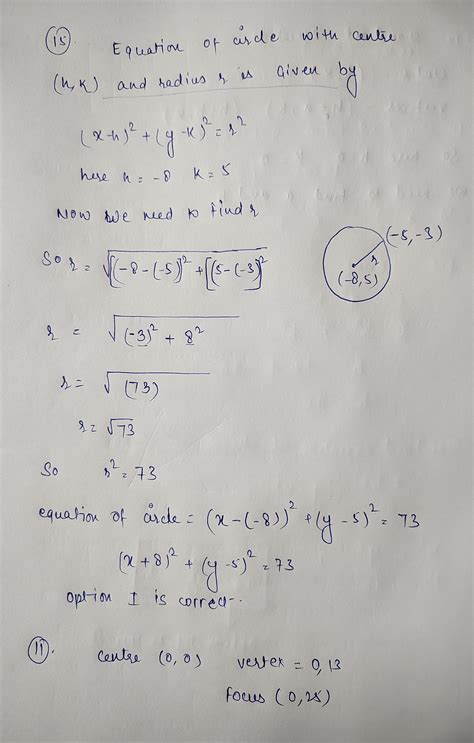 (15) Equation of circle with centre
(h, k) and radius r is Given by
(x-h)² + (y-k)² = r²
here h = -8 k = 5
Now we need to find r
So r = √[(-8-(-5)]² + [(5-(-3)]²
(-5, -3)
r
(-8, 5)
r = √(-3)² + 8²
r = √(73)
r = √73
So r² = 73
equation of circle = (x-(-8))² + (y-5)² = 73
(x+8)² + (y-5)² = 73
option I is correct.
(11). centre (0, 0) vertex = 0, 13
focus (0, 25)